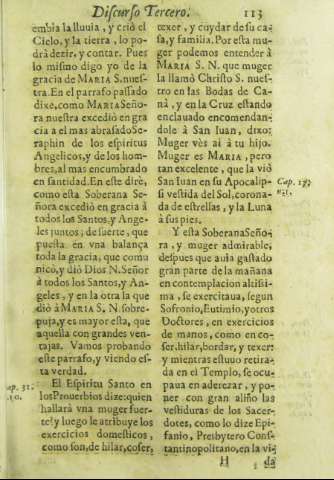 Discurso Tercero. 113
embia la lluuia, y criò el
Cielo, y la tierra, lo po-
drà dezir, y contar. Pues
lo mismo digo yo de la
gracia de MARIA S. nues-
tra. En el parrafo passado
dixe, como MARIA Seño-
ra nuestra excediò en gra
cia a el mas abrasado Se-
raphin de los espiritus
Angelicos, y de los hom-
bres, al mas encumbrado
en santidad. En este dirè,
como esta Soberana Se-
ñora excediò en gracia à
todos los Santos, y Ange-
les juntos; de suerte, que
puesta en vna balança
toda la gracia, que comu
nicò, y diò Dios N. Señor
à todos los Santos, y An-
geles, y en la otra la que
diò à MARIA S. N. sobre-
puja, y es mayor esta, que
aquella con grandes ven-
tajas. Vamos probando
este parrafo, y viendo es-
ta verdad.
El Espiritu Santo en
los Prouerbios dize: quien
hallarà vna muger fuer-
te? y luego le atribuye los
exercicios domesticos,
como son, de hilar, coser,
ap. 31.
10.
texer, y cuydar de su ca-
sa, y familia. Por esta mu-
ger podemos entender à
MARIA S. N. que muger
la llamò Christo S. nues-
tro en las Bodas de Ca-
nà, y en la Cruz estando
enclauado encomendan-
dole à San Iuan, dixo:
Muger vès ai à tu hijo.
Muger es MARIA, pero
tan excelente, que la viò
San Iuan en su Apocalip-
si vestida del Sol, corona-
da de estrellas, y la Luna
à sus pies.
Y esta Soberana Seño-
ra, y muger admirable,
despues que auia gastado
gran parte de la mañana
en contemplacion altissi-
ma, se exercitaua, segun
Sofronio, Eutimio, y otros
Doctores, en exercicios
de manos, como en co-
ser, hilar, bordar, y texer:
y mientras estuuo retira-
da en el Templo, se ocu-
paua en aderezar, y po-
ner con gran aliño las
vestiduras de los Sacer-
dotes, como lo dize Epi-
fanio, Presbytero Cons-
tantinopolitano, en la vi-
Cap. 12.
H da